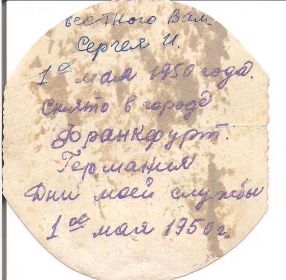 вестного Вам
Сергея И.
1ое мая 1950 года.
Снято в городе
Франкфурт
Германия
Дни моей службы
1ое мая 1950 г.